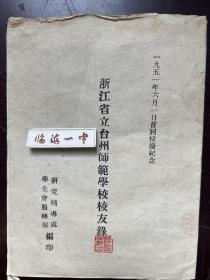 一九五一年六月一日首屆校慶紀念
浙江省立台州師範學校校友錄
臨海一中
研究輔導處
學生會服務部
編印